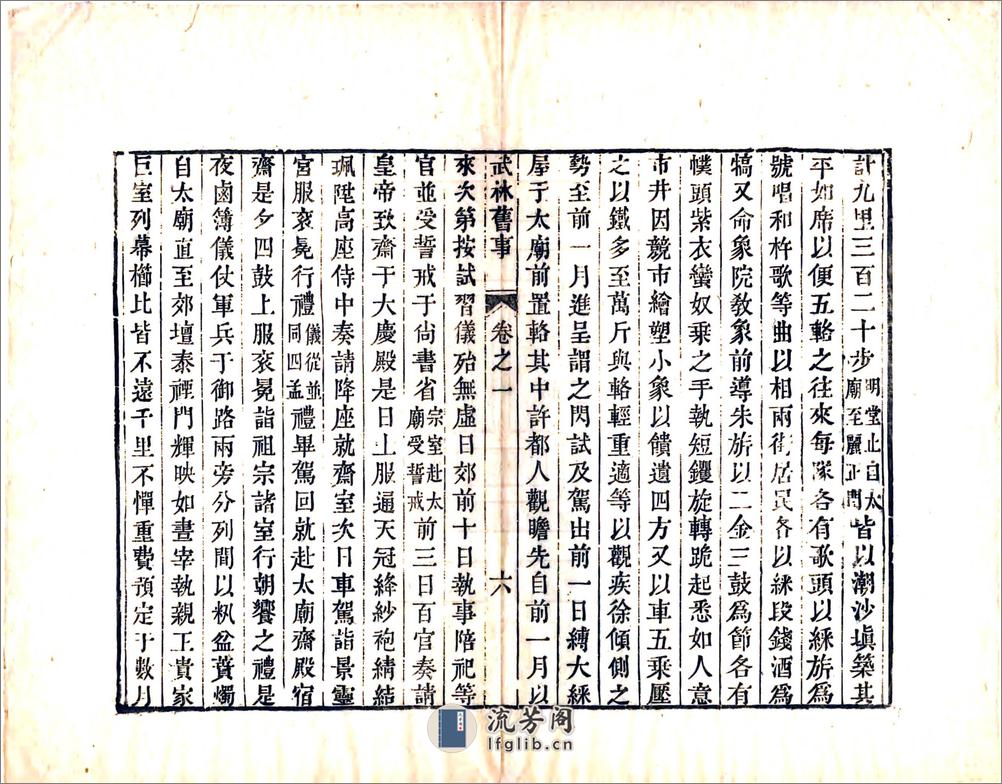 計九里三百二十步明堂止自太廟至麗正門皆以潮沙塡築其
平如席以便五輅之往來每隊各有歌頭以綵旂爲
號唱和杵歌等曲以相兩街居民各以綵段錢酒爲
犒又命象院敎象前導朱旂以二金三鼓爲節各有
幞頭紫衣蠻奴乘之手執短钁旋轉跪起悉如人意
市井因競市繪塑小象以饋遺四方又以車五乘壓
之以鐵多至萬斤與輅輕重適等以觀疾徐傾側之
勢至前一月進呈謂之閃試及駕出前一日縛大綵
屋于太廟前置輅其中許都人觀瞻先自前一月以
武林舊事 卷之一 六
來次第按試習儀殆無虛日郊前十日執事陪祀等
官並受誓戒于尙書省宗室赴太廟受誓戒前三日百官奏請
皇帝致齋于大慶殿是日上服通天冠絳紗袍綪結
珮陞高座侍中奏請降座就齋室次日車駕詣景靈
宮服衮冕行禮儀從並同四孟禮畢駕回就赴太廟齋殿宿
齋是夕四鼓上服衮冕詣祖宗諸室行朝饗之禮是
夜鹵簿儀仗軍兵于御路兩旁分列間以籸盆蕡燭
自太廟直至郊壇泰禋門輝映如晝宰執親王貴家
巨室列幕櫛比皆不遠千里不憚重費預定于數月
流芳阁
lfglib.cn